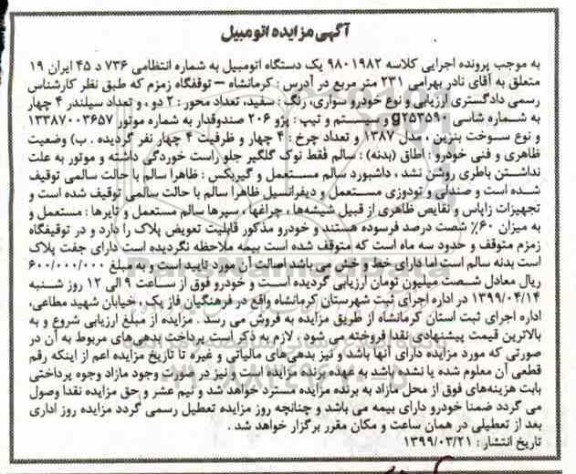 آگهی مزایده اتومبیل
به موجب پرونده اجرایی کلاسه ۹۸۰۱۹۸۲ یک دستگاه اتومبیل به شماره انتظامی ۷۳۶ د ۴۵ ایران ۱۹
متعلق به آقای نادر بهرامی ۲۳۱ متر مربع در آدرس : کرمانشاه – توقفگاه زمزم که طبق نظر کارشناس
رسمی دادگستری ارزیابی و نوع خودرو سواری، رنگ : سفید، تعداد محور : ۲ دو ، و تعداد سیلندر ۴ چهار
به شماره شاسی g۲۵۳۵۹۰ و سیستم و تیپ : پژو ۲۰۶ صندوقدار به شماره موتور ۱۳۳۸۷۰۰۳۶۵۷
و نوع سوخت بنزین ، مدل ۱۳۸۷ و تعداد چرخ : ۴ چهار و ظرفیت ۴ چهار نفر گردیده . ب) وضعیت
ظاهری و فنی خودرو : اطاق (بدنه) : سالم فقط نوک گلگیر جلو راست خوردگی داشته و موتور به علت
نداشتن باطری روشن نشد ، داشبورد سالم مستعمل و گیربکس : ظاهرا سالم با حالت سالمی توقیف
شده است و صندلی و تودوزی مستعمل و دیفرانسیل ظاهرا سالم با حالت سالمی توقیف شده است و
تجهیزات زاپاس و نقایص ظاهری از قبیل شیشه‌ها ، چراغها ، سپرها سالم مستعمل و تایرها : مستعمل و
به میزان ۶۰٪ شصت درصد فرسوده هستند و خودرو مذکور قابلیت تعویض پلاک را دارد و در توقیفگاه
زمزم متوقف و حدود سه ماه است که متوقف شده است بیمه ملاحظه نگردیده است دارای جفت پلاک
است بدنه سالم است اما دارای خط و خش می باشد اصالت آن مورد تایید است و به مبلغ ۶۰۰/۰۰۰/۰۰۰
ریال معادل شصت میلیون تومان ارزیابی گردیده است و خودرو فوق از ساعت ۹ الی ۱۲ روز شنبه
۱۳۹۹/۰۴/۱۴ در اداره اجرای ثبت شهرستان کرمانشاه واقع در فرهنگیان فاز یک ، خیابان شهید مطاعی،
اداره اجرای ثبت استان کرمانشاه از طریق مزایده به فروش می رسد . مزایده از مبلغ ارزیابی شروع و به
بالاترین قیمت پیشنهادی نقدا فروخته می شود ، لازم به ذکر است پرداخت بدهی‌های مربوط به آن در
صورتی که مورد مزایده دارای آنها باشد و نیز بدهی‌های مالیاتی و غیره تا تاریخ مزایده اعم از اینکه رقم
قطعی آن معلوم شده یا نشده باشد به عهده برنده مزایده است و نیز در صورت وجود مازاد وجوه پرداختی
بابت هزینه‌های فوق از محل مازاد به برنده مزایده مسترد خواهد شد و نیم عشر و حق مزایده نقدا وصول
می گردد ضمنا خودرو دارای بیمه می باشد و چنانچه روز مزایده تعطیل رسمی گردد مزایده روز اداری
بعد از تعطیلی در همان ساعت و مکان مقرر برگزار خواهد شد .
تاریخ انتشار : ۱۳۹۹/۰۳/۲۱